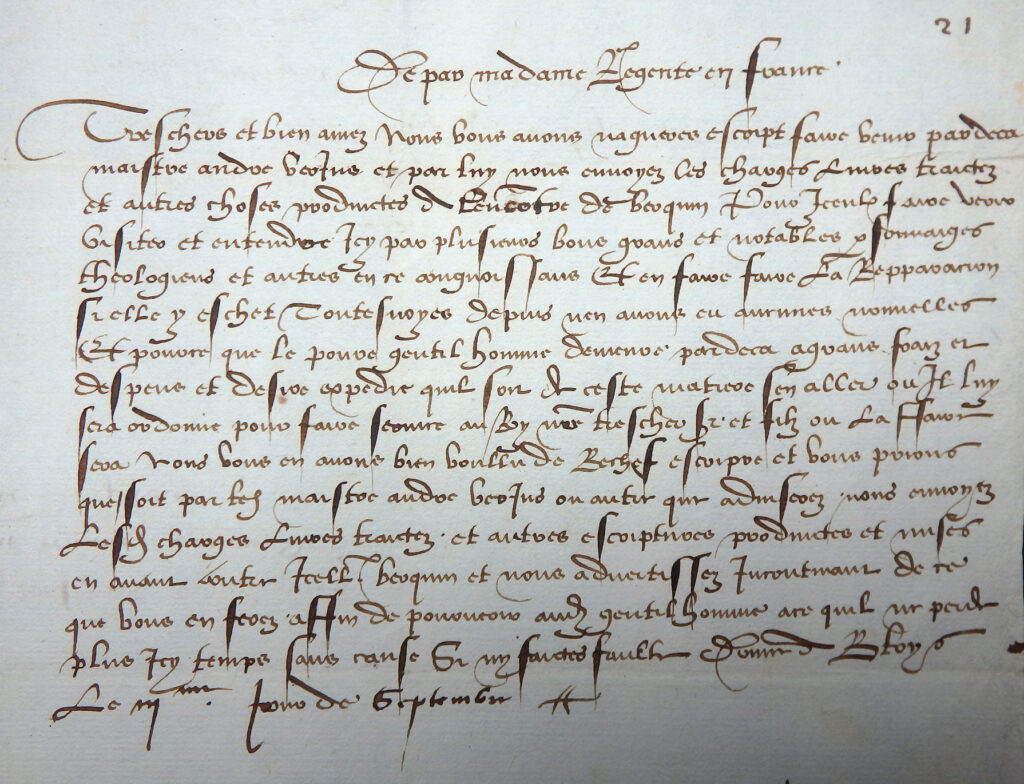 21
De par madame Regente en france
Treschers et bien amez Nous vous auons nagueres escript faire venir pardeca
maistre andre verJus et par luy nous enuoyez les charges Liures traictez
et autres choses produictes a Lencotre de berquin Pour Iceulx faire veoir
visiter et entendre Icy par plusieurs bons grans et notables psonnaiges
theologiens et autres en ce congnoissans Et en faire faire La Repparacion
si elle y eschet Toutesuoyes depuis nen auons eu aucunes nouuelles
Et pource que le poure gentil homme demeure pardeca a grans fraiz et
despens et desire expedie quil soit de ceste matiere sen aller ou Il luy
sera ordonne pour faire seruice au Roy nre trescher sr et filz ou La
sera Nous vous en auons bien voullu de Rechef escripre et vous prions
que soit par led maistre andre verJus ou autre que aduiserez nous enuoyez
Lesd charges Liures traictez et autres escriptures produictes et mises
en auant contre Icell berquin et nous aduertissez Incontinant de ce
que vous en ferez affin de pourueoir aud gentil homme ace quil ne perde
plus Icy temps sans cause Si ny faictes faulte Donne a Bloys
Le iiime Jour de Septembre